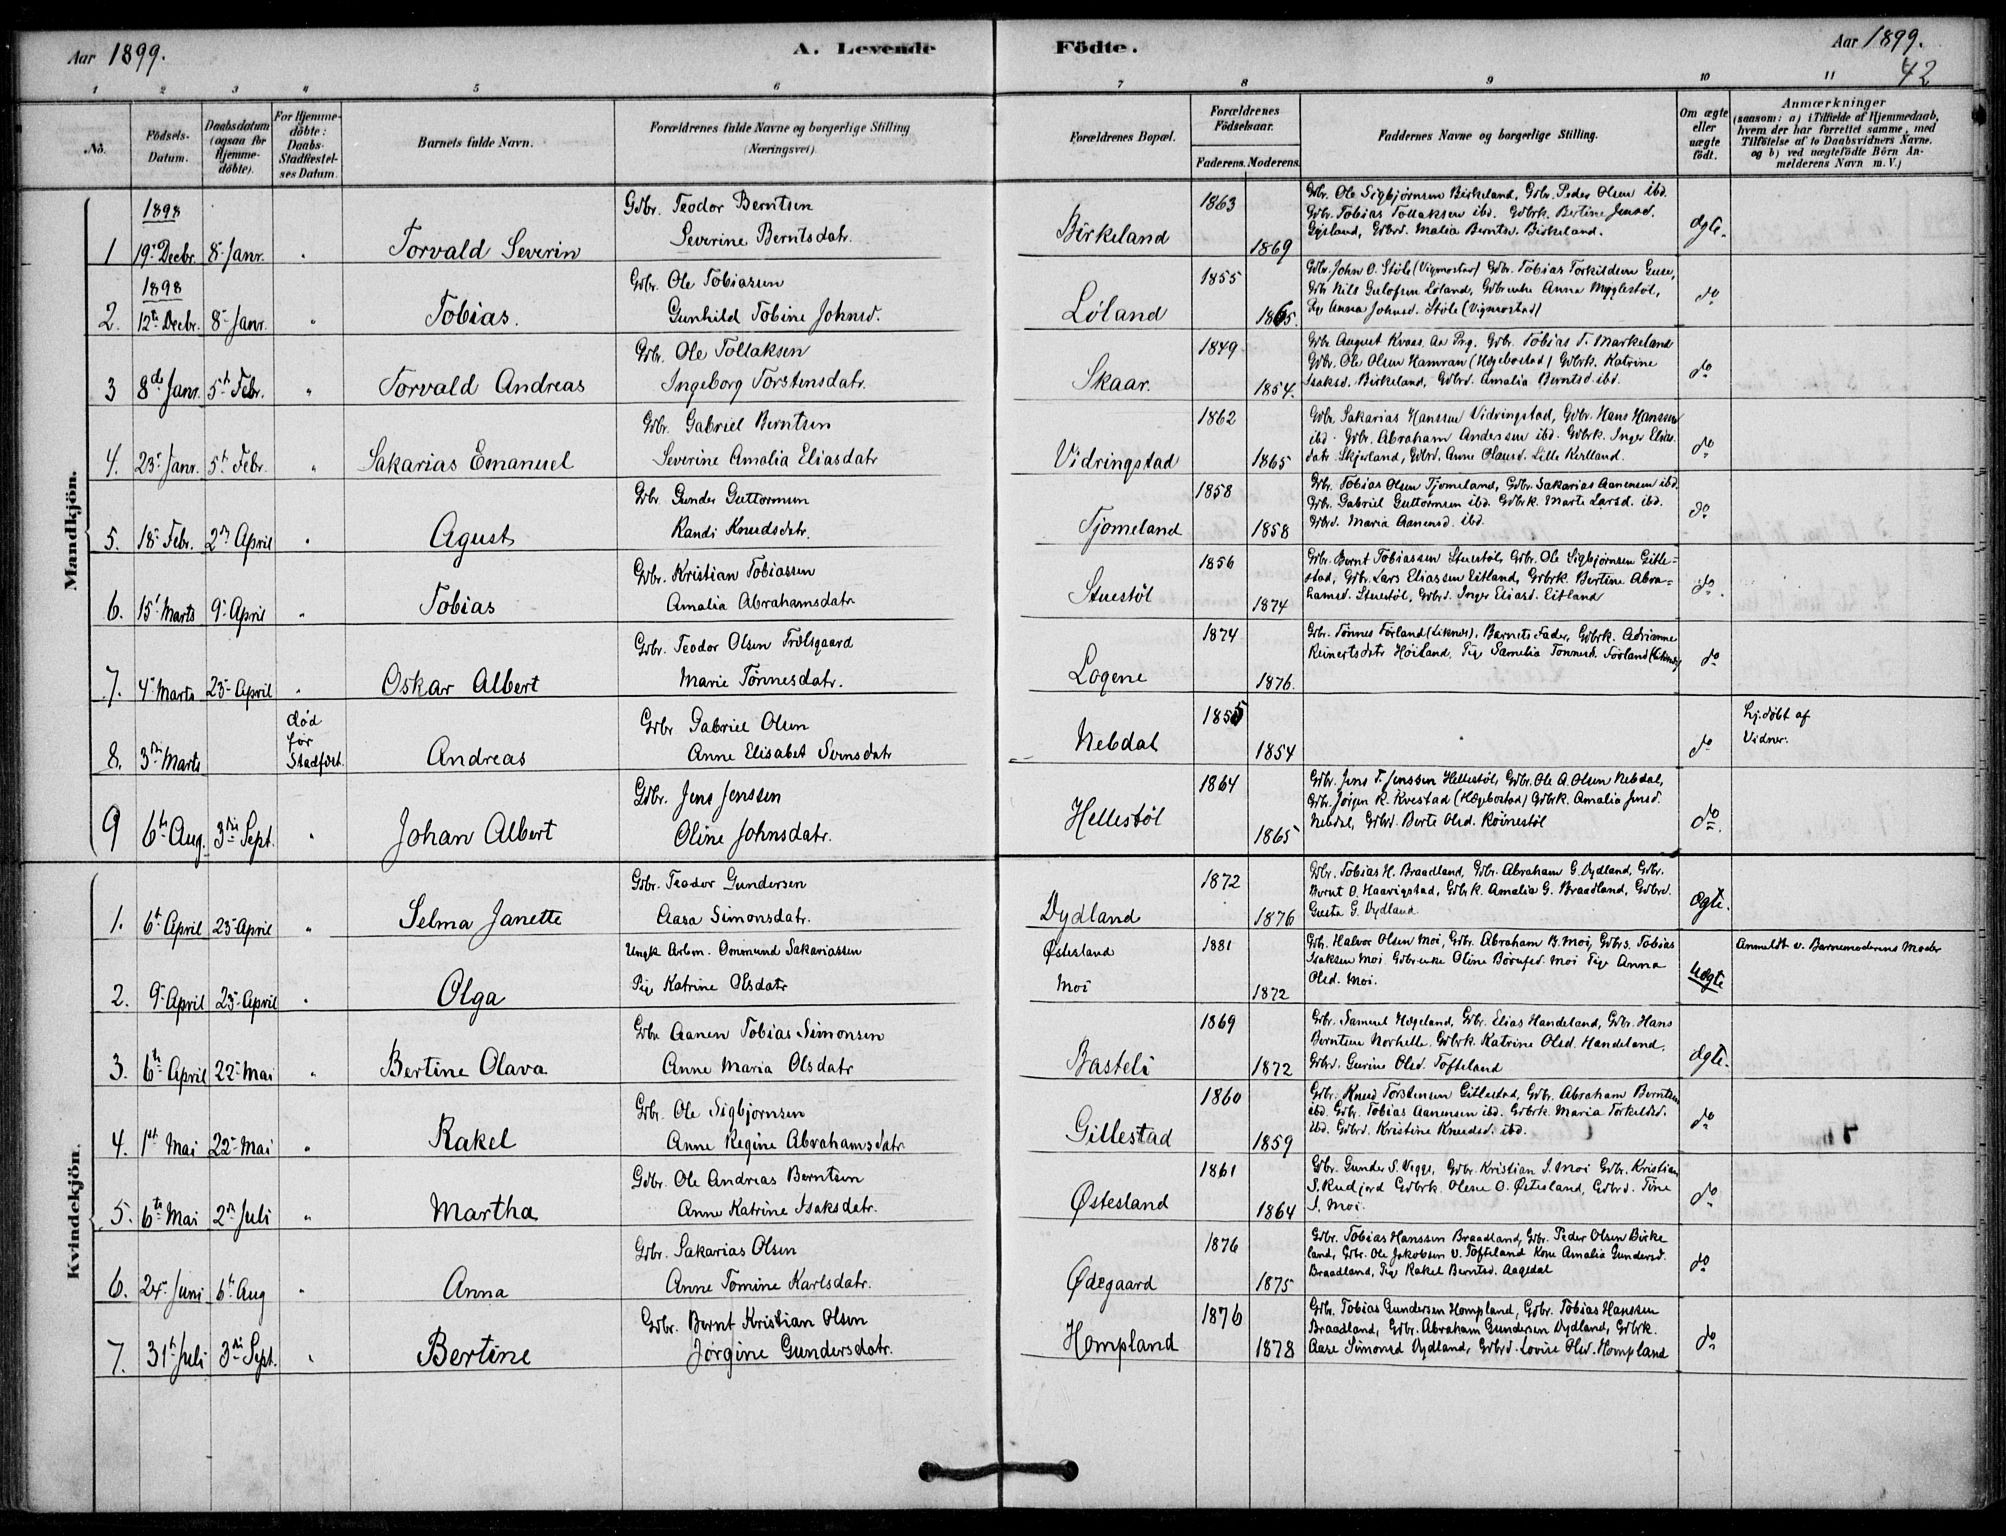 Aar 1899. A. Levende Födte. Aar 1899.
42
1 2 3 4 5 6 7 8 9 10 11
No.
Födsels-Datum.
Daabsdatum (ogsaa for Hjemme-döbte).
For Hjemme-döbte: Daabs-Stadfæstel-ses Datum.
Barnets fulde Navn.
Forældrenes fulde Navne og borgerlige Stilling (Næringsvei).
Forældrenes Bopæl.
Forældrenes Födselsaar.
Faderens. Moderens.
Faddernes Navne og borgerlige Stilling.
Om ægte eller uægte födt.
Anmærkninger
(saasom: a) i Tilfælde af Hjemmedaab,
hvem der har forrettet samme, med
Tilföielse af to Daabsvidners Navne.
og b) ved uægtefödte Börn An-
melderens Navn m. V.)
Mandkjön.
1898
1 19 Decbr. 8 Janr. " Torvald Severin
Gdbr. Teodor Berntsen
Severine Berntsdatr.
Birkeland 1863 1869
Gdbr. Ole Sigbjørnsen Birkeland, Gdbr. Peder Olsen ibd.
Gdbr. Tobias Tollaksen ibd. Gdbrk. Bertine Jensd.
Gysland, Gdbrd. Malia Berntsd. Birkeland.
ægte.
1898
2. 12te Decbr. 8 Janr. " Tobias.
Gdbr. Ole Tobiassen
Gunhild Tobine Johnsd.
Løland 1855 1865.
Gdbr. John O. Støle (Vigmostad) Gdbr. Tobias Torkildsen
Gdbr Nils Gulofsen Løland, Gdbrenke Anna Mygglestøl,
Pige Anna Johnsd. Støle (Vigmostad)
do
3 8de Janr. 5te Febr. " Torvald Andreas
Gdbr. Ole Tollaksen
Ingeborg Torstensdatr.
Skaar. 1849 1854.
Gdbr August Kvaas. Gdbr. Tobias T. Markeland
Gdbr. Ole Olsen Hamran (Hægebostad) Gdbrk. Katrine
Isaksd. Birkeland, Gdbrd. Amalia Berntsd ibd.
do
4. 23 Janr. 5te Febr. " Sakarias Emanuel
Gdbr. Gabriel Berntsen
Severine Amalia Eliasdatr
Vidringstad 1862 1865
Gdbr Sakarias Hanssen Vidringstad, Gdbr. Hans Hanssen
ibd. Gdbr. Abraham Anderssen ibd. Gdbrk. Inger Elias-
datr. Skjerland, Gdbrd. Anne Olausd. Lille Kvelland.
do
5. 18 Febr. 2den April " Agust
Gdbr. Gunder Guttormsen
Randi Knudsdatr.
Tjomeland 1858 1858
Gdbr. Tobias Olsen Tjomeland, Gdbr. Sakarias Aanensen ibd.
Gdbr. Gabriel Guttormsen ibd. Gdbrk. Marte Larsd. ibd.
Gdbrd. Maria Aanensd. ibd.
do
6. 15 Marts 9 April " Tobias
Gdbr. Kristian Tobiassen
Amalia Abrahamsdatr
Stuestøl 1856 1874
Gdbr. Bernt Tobiassen Stuestøl, Gdbr. Ole Sigbjørnsen Gitle-
stad, Gdbr. Lars Eliassen Eitland, Gdbrk. Bertine Abra-
hamsd. Stuestøl, Gdbrd. Inger Eliasd. Eitland
do.
7. 4 Marts 23 April " Oskar Albert
Gdbr. Teodor Olsen Trælsgaard
Marie Tønnesdatr.
Logene 1874 1876.
Gdbr. Tønnes Førland (Liknes). Barnets Fader, Gdbrk. Adrianne
Reinertsdatr Høiland, Pige Samelia Tønnesd. Førland (Liknes)
do
8. 3die Marts død før Stadfæst. Andreas
Gdbr Gabriel Olsen
Anne Elisabet Svensdatr
Nebdal 1855 1854
do
hj. døbt af
Vidner.
9 6te Aug. 3die Sept. " Johan Albert
Gdbr. Jens Jenssen
Oline Johnsdatr.
Hellestøl 1864 1865
Gdbr. Jens T. Jenssen Hellestøl, Gdbr. Ole A. Olsen Nebdal,
Gdbr. Jørgen K. Kvestad (Hægebostad) Gdbrk. Amalia Jensd.
Nebdal, Gdbrd. Berte Olsd. Røinestøl
do.
Kvindekjön.
1. 6te April 23 April " Selma Janette
Gdbr. Teodor Gundersen
Aasa Simonsdatr.
Dydland 1872 1876
Gdbr. Tobias H. Braadland, Gdbr. Abraham G. Dydland, Gdbr.
Bernt O. Haavigstad, Gdbrk. Amalia G. Braadland, Gdbrd.
Gusta G. Dydland.
ægte.
2. 9 April 23 April " Olga
Ungk. Arbm. Ommund Sakariassen
Pige Katrine Olsdatr
Østesland
Moi 1881 1872
Gdbr. Halvor Olsen Moi, Gdbr. Abraham B. Moi, Gdbrs. Tobias
Isaksen Moi. Gdbrenke Oline Børufsd. Moi Pige Anna
Olsd. Moi.
uægte
Anmeldt v. Barnemoderens Moder
3. 6te April 22 Mai " Bertine Olava
Gdbr Aanen Tobias Simonsen
Anne Maria Olsdatr
Basteli 1869 1872
Gdbr. Samuel Hægeland, Gdbr. Elias Handeland, Gdbr. Hans
Berntsen Norhelle. Gdbrk. Katrine Olsd. Handeland.
Gdbrd. Gurine Olsd. Tofteland
ægte.
4. 1ste Mai 22 Mai " Rakel
Gdbr. Ole Sigbjørnsen
Anne Regine Abrahamsdatr.
Gitlestad 1860 1859
Gdbr. Knud Torstensen Gitlestad, Gdbr. Abraham Berntsen
ibd. Gdbr. Tobias Aanensen ibd. Gdbrk. Maria Torkildsd.
ibd. Gdbrd. Kristine Knudsd. ibd.
do
5. 6te Mai 2den Juli " Martha
Gdbr. Ole Andreas Berntsen
Anne Katrine Isaksdatr.
Østesland 1861 1864
Gdbr. Gunder S. Vegge, Gdbr. Kristian I. Moi Gdbr. Kristian
S. Rudjord Gdbrk. Olene O. Østesland, Gdbrd. Tine
I. Moi.
do
6. 24 Juni 6te Aug " Anna
Gdbr. Sakarias Olsen
Anne Tomine Karlsdatr.
Ødegaard 1876 1875
Gdbr. Tobias Hanssen Braadland, Gdbr. Peder Olsen Birke
land, Gdbr. Ole Jakobsen v. Tofteland Kone Amalia Gundersd.
Braadland, Pige Rakel Berntsd. Aagedal
do
7. 31te Juli 3die Sept. " Bertine
Gdbr. Bernt Kristian Olsen
Jørgine Gundersdatr.
Hompland 1876 1878
Gdbr. Tobias Gundersen Hompland, Gdbr. Tobias Hanssen
Braadland, Gdbr. Abraham Gundersen Dydland, Gdbrk.
Aase Simonsd Dydland, Gdbrd. Lovise Olsd. Hompland
do